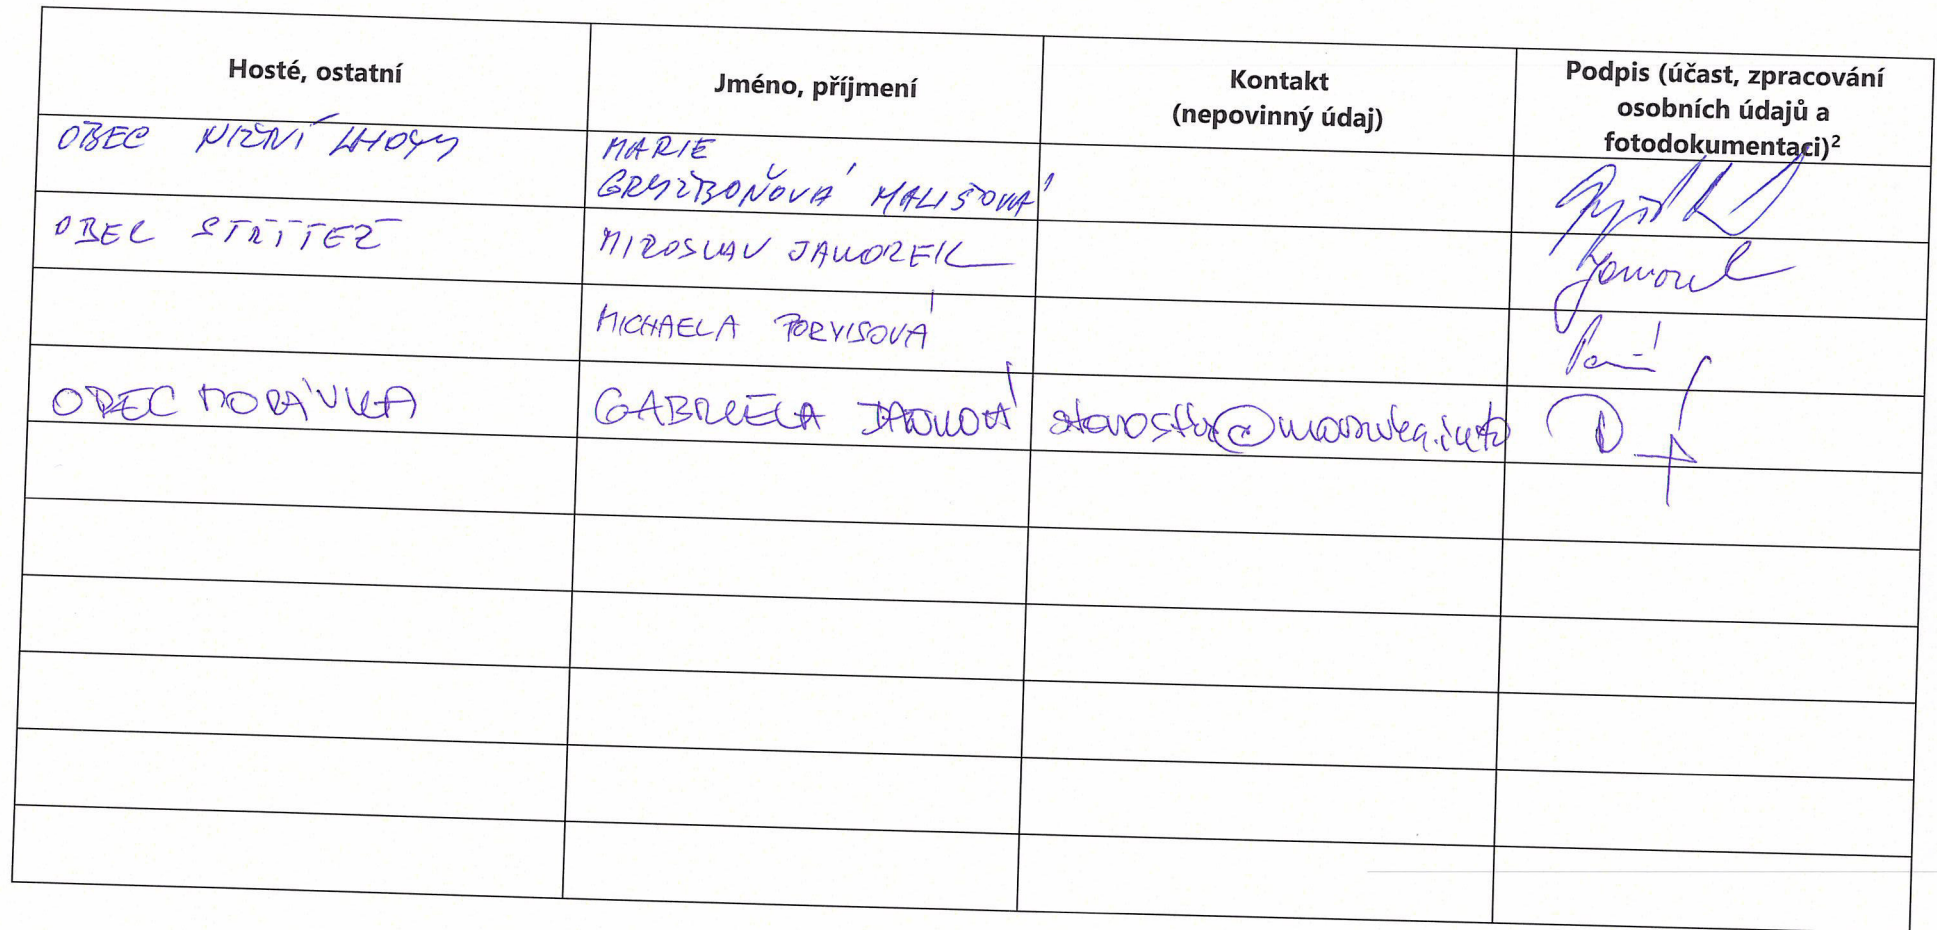 Hosté, ostatní
Jméno, příjmení
Kontakt
(nepovinný údaj)
Podpis (účast, zpracování
osobních údajů a
fotodokumentaci)²
OBEC NIŽNÍ LHOTY
MARIE
GRYŽBOŇOVÁ MALIŠOVÁ
OBEC STŘÍTEŽ
MIROSLAV JAWOREK
MICHAELA
OBEC MORÁVKA
GABRIELA
starostka@moravka.info